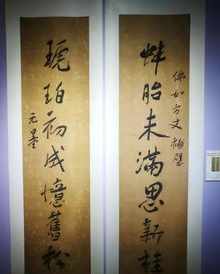 佛如方丈 撫正
蚌胎未滿思新桂
琥珀初成憶舊松
元墨